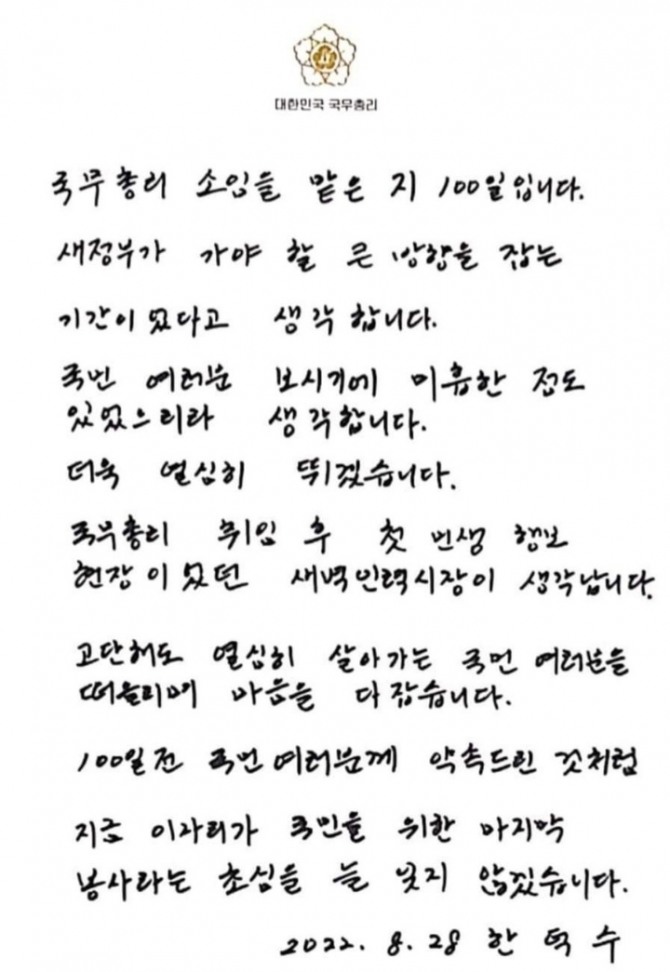 대한민국 국무총리
국무총리 소임을 맡은 지 100일입니다.
새정부가 가야 할 큰 방향을 잡는
기간이었다고 생각합니다.
국민 여러분 보시기에 미흡한 점도
있었으리라 생각합니다.
더욱 열심히 뛰겠습니다.
국무총리 취임 후 첫 민생 행보
현장이었던 새벽인력시장이 생각납니다.
고단해도 열심히 살아가는 국민 여러분을
떠올리며 마음을 다잡습니다.
100일전 국민여러분께 약속드린 것처럼
지금 이자리가 국민을 위한 마지막
봉사라는 초심을 늘 잊지 않겠습니다.
2022. 8. 28 한 덕 수